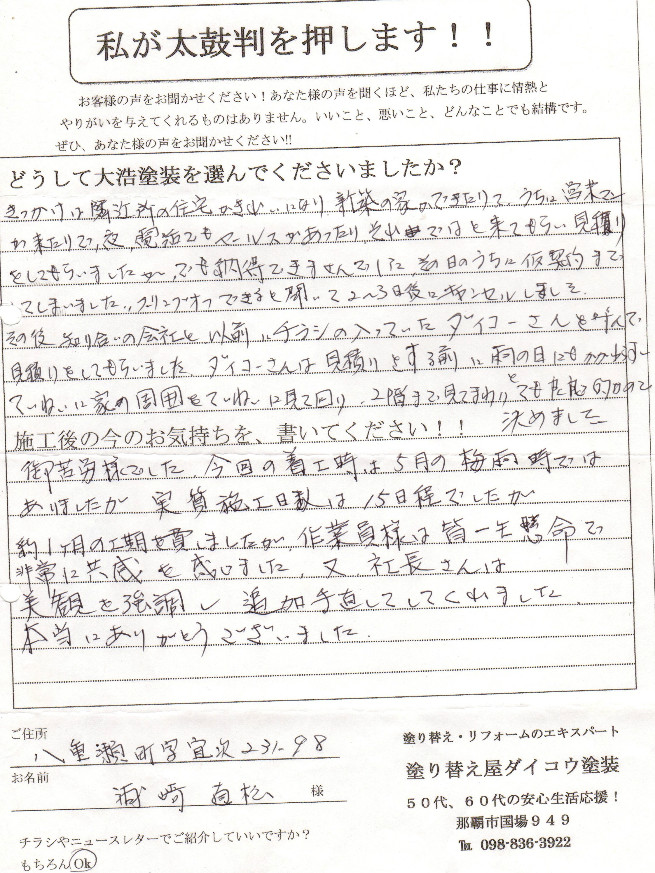 私が太鼓判を押します！！
お客様の声をお聞かせください！あなた様の声を聞くほど、私たちの仕事に情熱と
やりがいを与えてくれるものはありません。いいこと、悪いこと、どんなことでも結構です。
ぜひ、あなた様の声をお聞かせください!!
どうして大浩塗装を選んでくださいましたか？
きっかけは隣近所の住宅がきれいになり新築の家ができたりて、うちに営業で
か来たりで、夜、電話でもセールスがあったり それではと来てもらい見積り
をしてもらいましたが、でも納得できませんでした、その日のうちに仮契約まで
してしまいました。クーリングオフできると聞いて2〜3日後にキャンセルしました。
その後 知り合いの会社と以前にチラシの入っていたダイコーさんを呼んで、
見積りをしてもらいました ダイコーさんは見積りをする前に雨の日にもかかわらず
ていねいに家の周囲をていねいに見て回り、2階まで見てまわり とても
決めました
施工後の今のお気持ちを、書いてください！！
御苦労様でした。今回の着工時は5月の梅雨時では
ありましたが 実質施工日数は15日程でしたが
約1ヶ月の工期を費しましたが、作業員様は皆一生懸命で
非常に共感を感じました、又、社長さんは
美観を強調し 追加手直ししてくれました。
本当にありがとうございました。
ご住所
八重瀬町字宜次231-98
お名前
様
チラシやニュースレターでご紹介していいですか？
もちろん Ok
塗り替え・リフォームのエキスパート
塗り替え屋ダイコウ塗装
５０代、６０代の安心生活応援！
那覇市国場９４９
℡ 098-836-3922